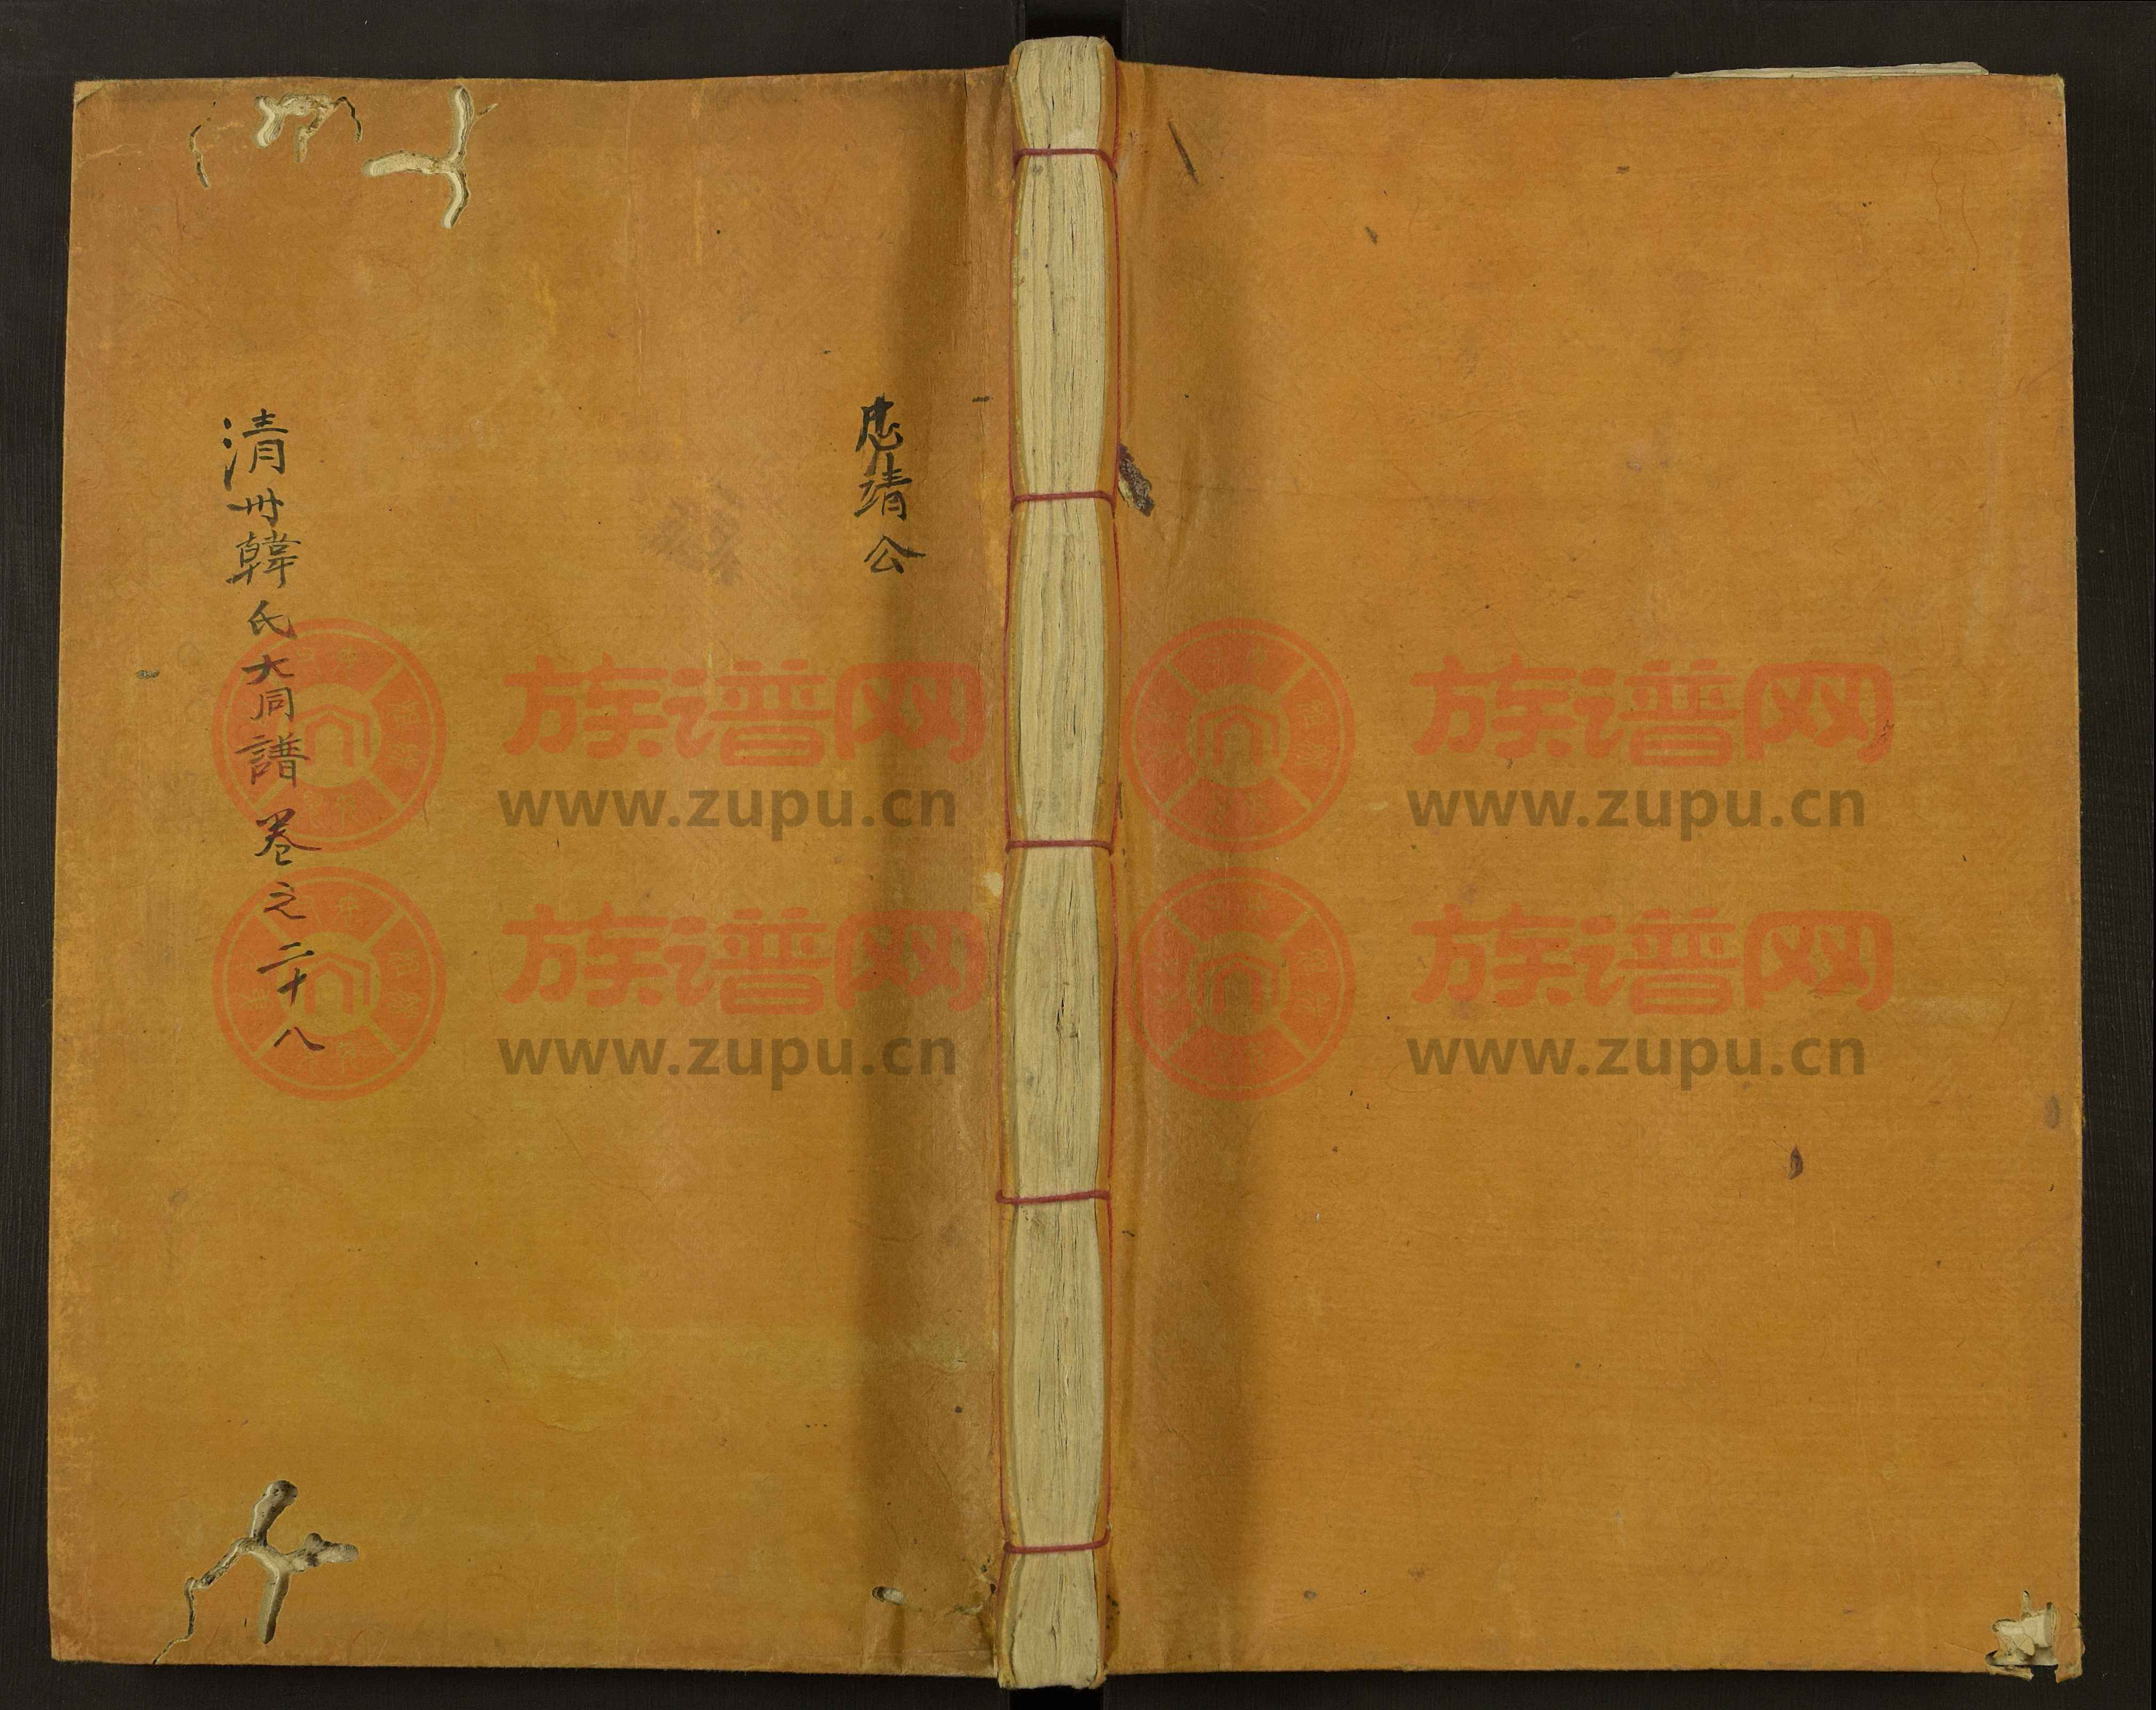 忠靖公
清州韓氏大同譜 卷之二十八
族谱网
www.zupu.cn
族谱网
www.zupu.cn
族谱网
www.zupu.cn
族谱网
www.zupu.cn